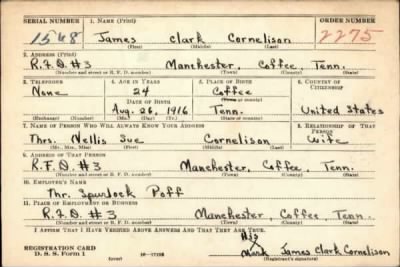 SERIAL NUMBER 1. NAME (Print) ORDER NUMBER
1568 James Clark Cornelison 2275
(First) (Middle) (Last)
2. ADDRESS (Print)
R.F.D. #3 Manchester, Coffee, Tenn.
(Number and street or R. F. D. number) (Town) (County) (State)
3. TELEPHONE 4. AGE IN YEARS 5. PLACE OF BIRTH 6. COUNTRY OF CITIZENSHIP
None 24 Coffee
DATE OF BIRTH (Town or county)
Aug. 26, 1916 Tenn. United States
(Exchange) (No.) (Mo.) (Day) (Yr.) (State or country)
7. NAME OF PERSON WHO WILL ALWAYS KNOW YOUR ADDRESS 8. RELATIONSHIP OF THAT PERSON
Mrs. Nellis Sue Cornelison Wife
(Mr., Mrs., Miss) (First) (Middle) (Last)
9. ADDRESS OF THAT PERSON
R.F.D. #3 Manchester, Coffee, Tenn.
(Number and street or R. F. D. number) (Town) (County) (State)
10. EMPLOYER'S NAME
Mr. Spurlock Poff
11. PLACE OF EMPLOYMENT OR BUSINESS
R.F.D. #3 Manchester, Coffee, Tenn.
(Number and street or R. F. D. number) (Town) (County) (State)
I AFFIRM THAT I HAVE VERIFIED ABOVE ANSWERS AND THAT THEY ARE TRUE.
His
REGISTRATION CARD X James Clark Cornelison
D. S. S. Form 1 (over) Mark (Registrant's signature)